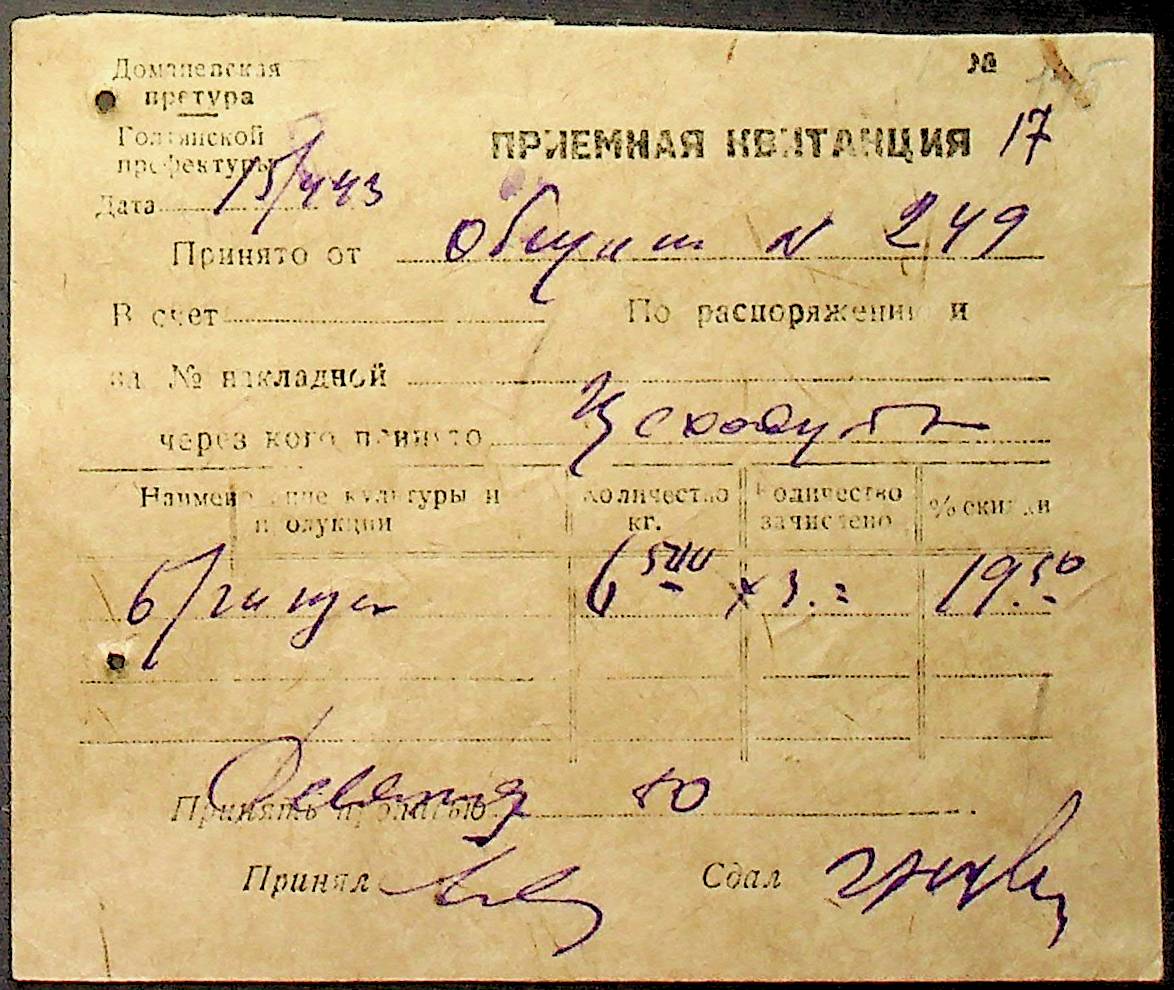 №
Доманевская
претура
Голтянской
префектуры
ПРИЕМНАЯ КВИТАНЦИЯ 17
Дата 15/443
Принято от № 249
В счет По распоряжению и
на № накладной
через кого принято
Наименование культуры и продукции
Количество кг.
Количество зачислено
% скидки
6 500 × 3.= 19.50
Принять прописью 50
Принял Сдал